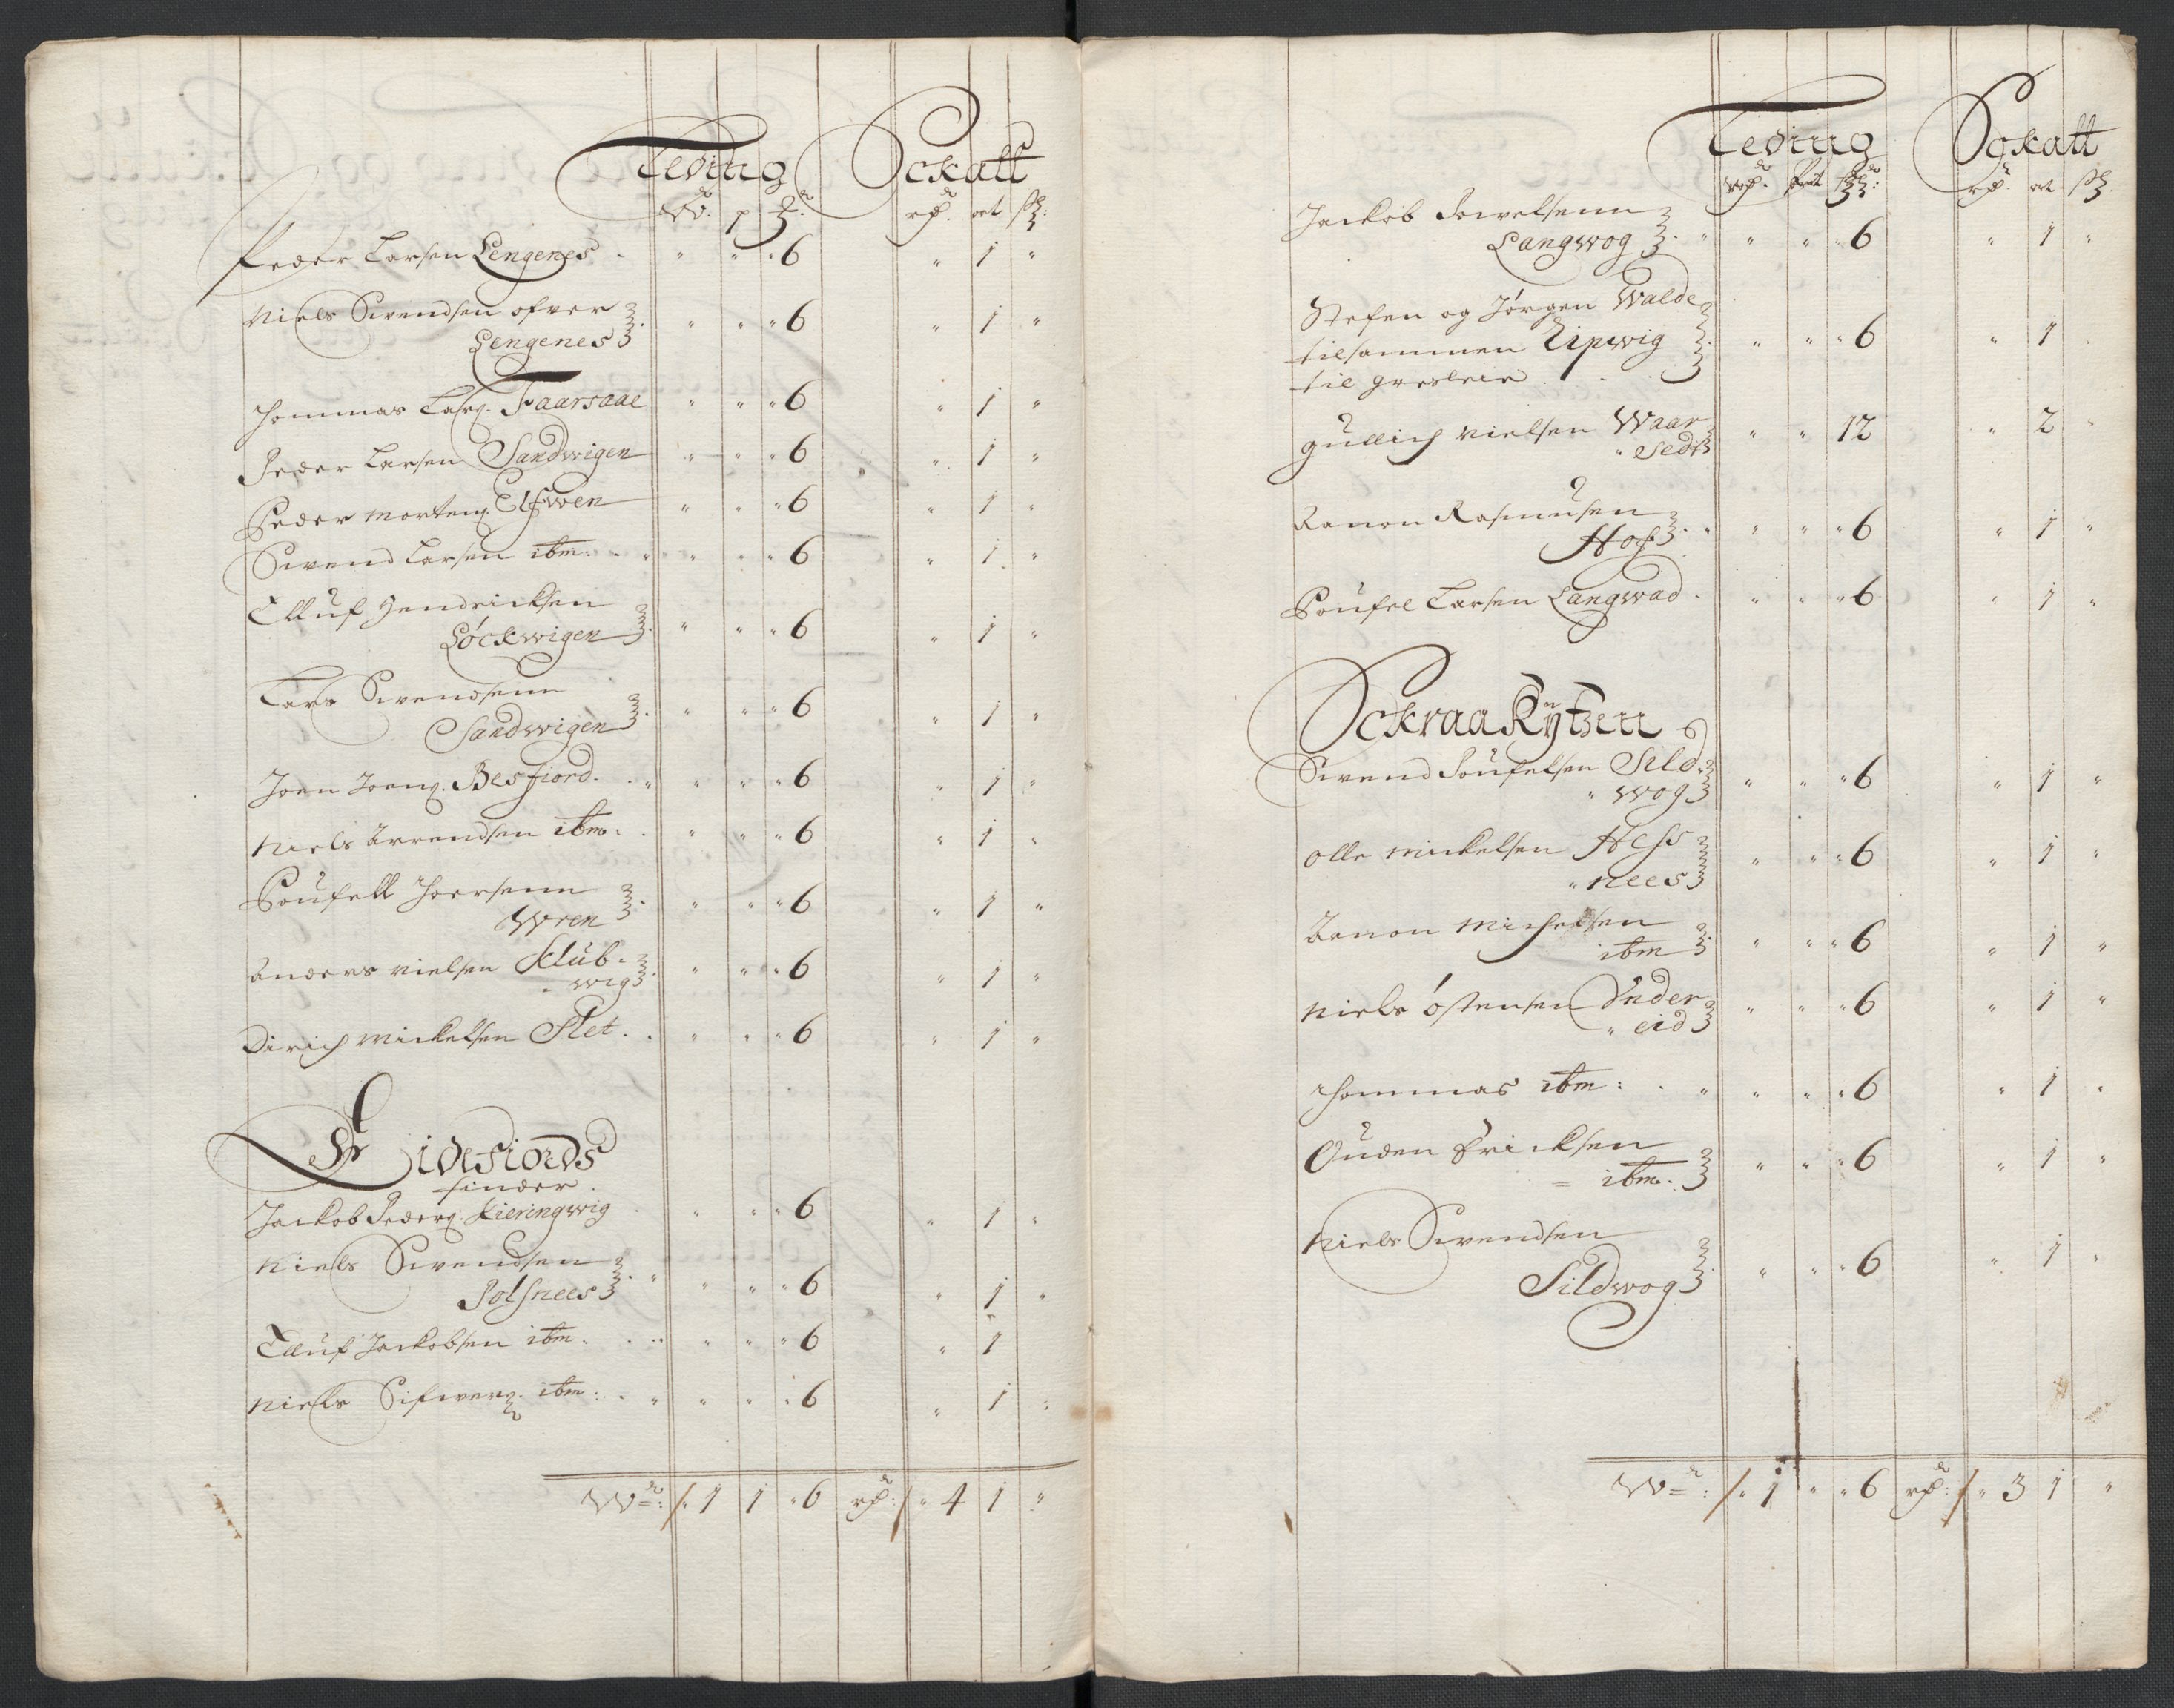 Leding Sckatt
Wo: p ℔: rd. ort s:
Peder Larsen Lengenes . " " " 6 " 1 "
Niels Svendsen ofver
Lengenes " " " 6 " 1 "
Thommas Larss. Faarsaae " " " 6 " 1 "
Peder Larsen Sandwigen " " " 6 " 1 "
Peder Mortens. Elfwen " " " 6 " 1 "
Svend Larsen ibm: " " " 6 " 1 "
Elluf Hendricksen
Løckwigen " " " 6 " 1 "
Lars Svendsenn
Sandwigen " " " 6 " 1 "
Joen Joens. Besfiord. " " " 6 " 1 "
Niels Arrendsen ibm: " " " 6 " 1 "
Poufell Thorsenn
Wren " " " 6 " 1 "
Anders Nielsen Klub-
wig " " " 6 " 1 "
Dirich Mickelsen Slet . " " " 6 " 1 "
idefiords
finder .
Jackob Peders. Kieringwig " " " 6 " 1 "
Niels Svendsen
Jolsnees " " " 6 " 1 "
Elluf Jackobsen ibm . " " " 6 " 1
Niels Sifwers. ibm : " " " 6 " 1 "
W: / 1 1 " 6 rd: / " 4 1 "
Leding Sckatt
wog. pd ℔: rd. ort s.
Jackob Powelsenn
Langwog " " " 6 " 1 "
Stefen og Jørgen Walde
tilsammen Lipwig
til gresleie . " " " 6 " 1
Gullich Nielsen Waar
" Sedr " " 12 " 2 "
Aanon Rasmusen
Hof " " " 6 " 1 "
Poufel Larsen Langwad . " " " 6 " 1 "
Sckraa Kÿtzen
Svend Poufelsen Sild-
" wog " " " 6 " 1 "
Olle Mickelsen Hess
" nees " " " 6 " 1 "
Aanon Michelsen
ibm " " " 6 " 1 "
Niels Østensen Under
" eid " " " 6 " 1 "
Thommas ibm : " " " 6 " 1 "
Ouden Ericksen
= ibm. " " " 6 " 1 "
Niels Svendsen
Sildwog " " " 6 " 1 "
W: / " 1 " " 6 rd: / " 3 1 "